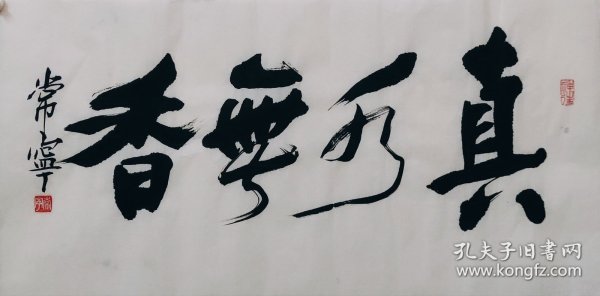 真水無香
常寧
孔夫子旧书网
www.kongfz.com